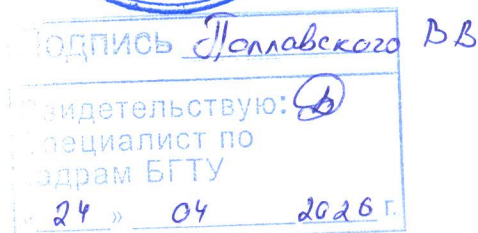 Подпись Поплавского ВВ
Свидетельствую:
Специалист по
кадрам БГТУ
« 24 » 04 2026 г.